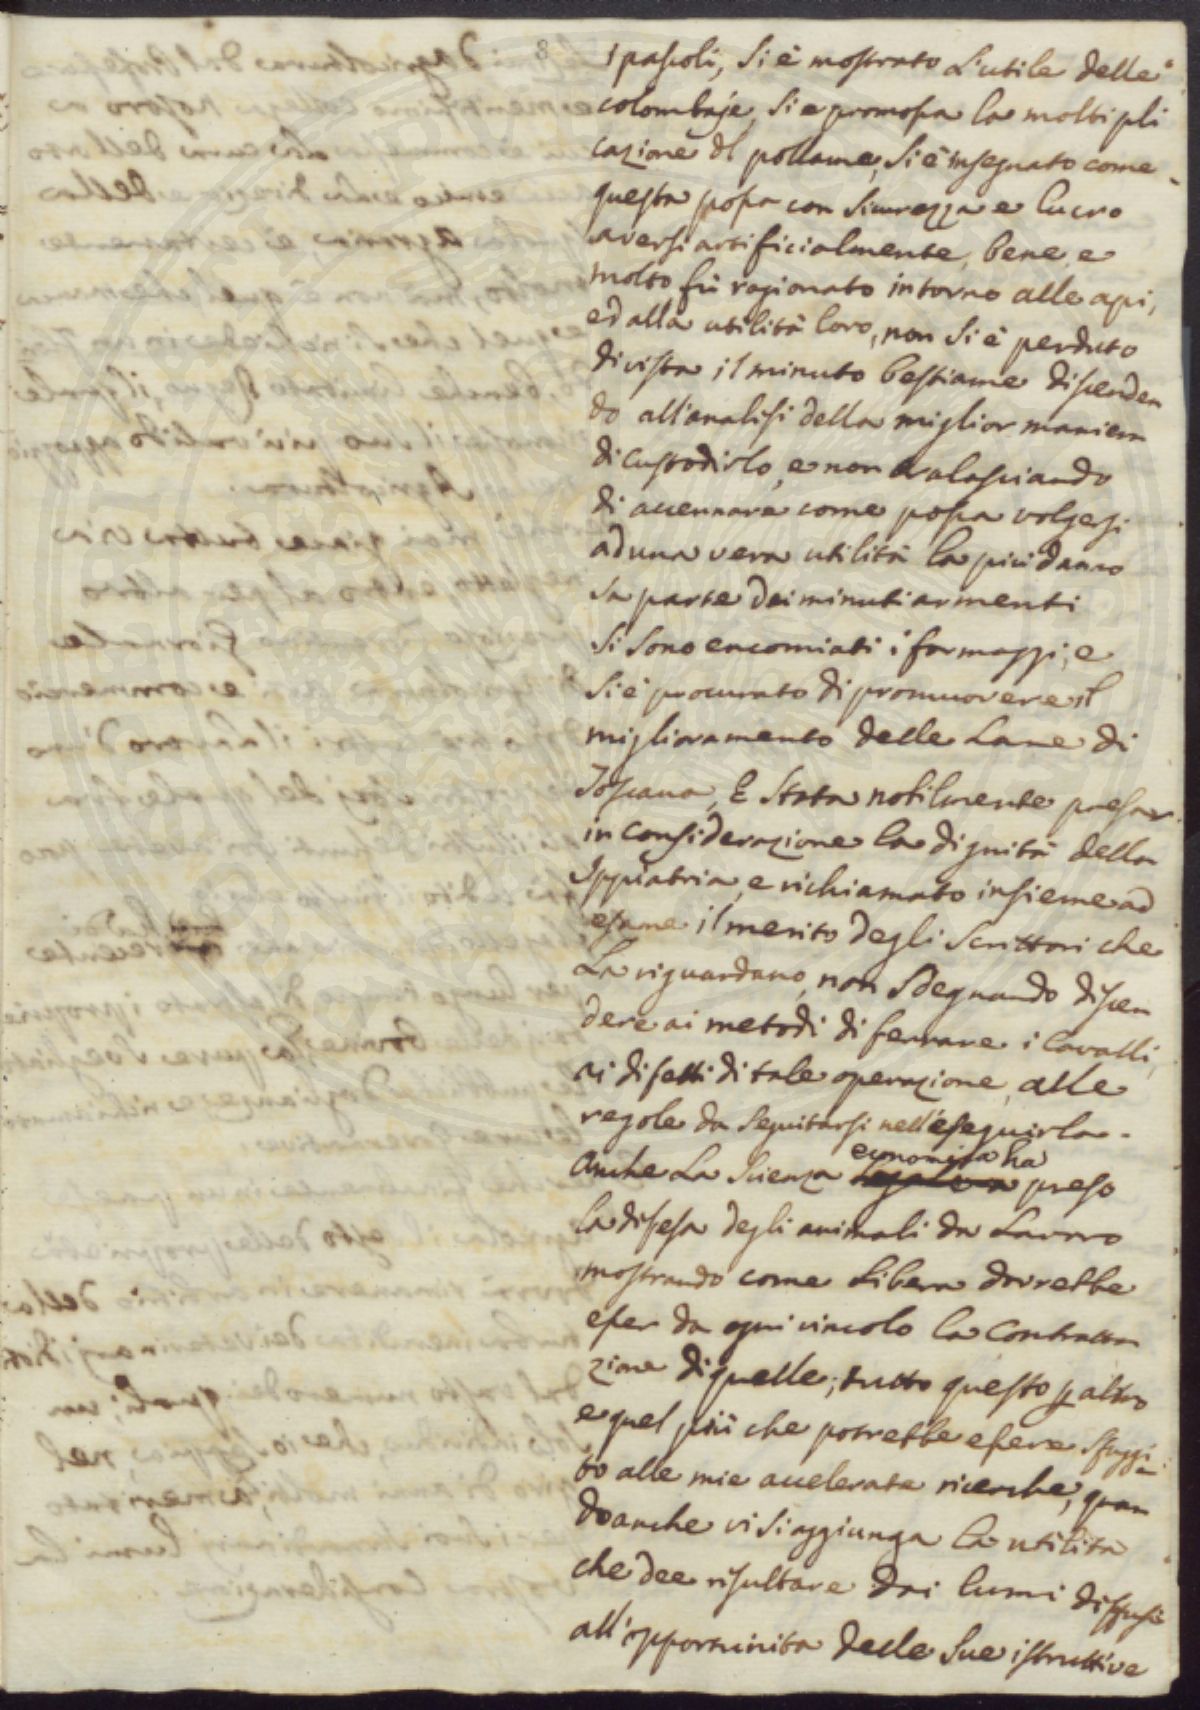 8
i pascoli, Si è mostrato L'utile delle
colombaje, Si è promossa la moltipli
cazione dl pollame, Si è insegnato come
questa possa con Sicurezza e lucro
aversi artificialmente, bene e
molto fù ragionato intorno alle api,
ed alla utilità loro, non Si è perduto
di vista il minuto bestiame discenden
do all'analisi della miglior maniera
di custodirlo, e non tralasciando
di accennare come possa volgersi
ad una vera utilità la più danno
sa parte dei minuti armenti
Si Sono encomiati i formaggi, e
Si è procurato di promuovere il
miglioramento delle Lane di
Toscana, È Stata nobilmente presa
in Considerazione la dignità della
Ippiatria, e richiamato insieme ad
esame il merito degli Scrittori che
La riguardano, non Sdegnando discen
dere ai metodi di ferrare i Cavalli,
ai difetti di tale operazione, alle
regole da Seguitarsi nell'eseguirla.
Anche La Scienza economica ha preso
la difesa degli animali da Lavoro
mostrando come Libera dovrebbe
esser da ogni vincolo la Contratta
zione di quelle; tutto questo p altro
e quel più che potrebbe essere sfuggi
to alle mie accelerate ricerche, quan
do anche vi Si aggiunga la utilità
che dee risultare dai lumi diffusi
all'opportunità delle Sue istruttive